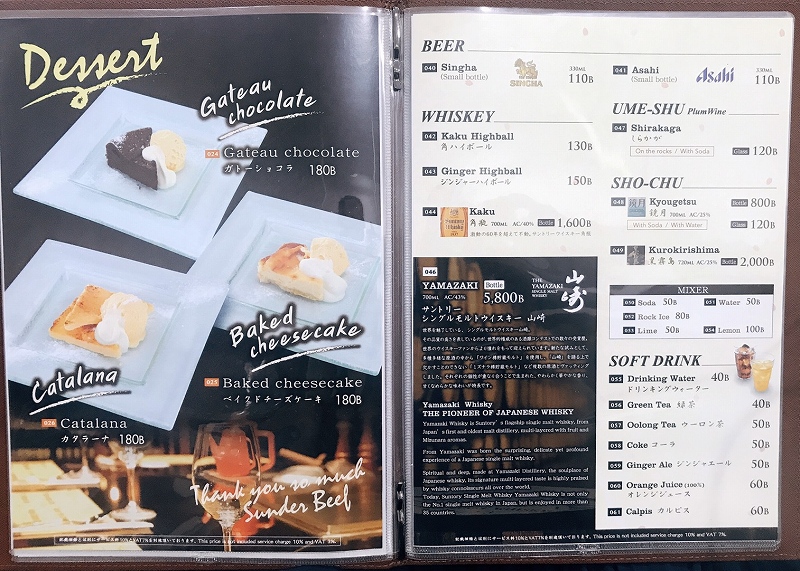 Dessert
Gateau
chocolate
024 Gateau chocolate
ガトーショコラ 180B
Baked
cheesecake
025 Baked cheesecake
ベイクドチーズケーキ 180B
Catalana
026 Catalana
カタラーナ 180B
Thank you so much
Sunder Beef
This price is not included service charge 10% and VAT 7%.
BEER
040 Singha
(Small bottle)
SINGHA
330ML
110B
041 Asahi
(Small bottle)
Asahi
330ML
110B
WHISKEY
042 Kaku Highball
角ハイボール 130B
043 Ginger Highball
ジンジャーハイボール 150B
044 Kaku
角瓶 700ML AC/40% Bottle 1,600B
046
YAMAZAKI Bottle
700ML AC/43% 5,800B
THE
YAMAZAKI
SINGLE MALT
WHISKY
山崎
サントリー
シングルモルトウイスキー 山崎
世界を魅了している、シングルモルトウイスキー山崎。
Yamazaki Whisky
THE PIONEER OF JAPANESE WHISKY
Yamazaki Whisky is Suntory's flagship single malt whisky, from
Japan's first and oldest malt distillery, multi-layered with fruit and
Mizunara aromas.
From Yamazaki was born the surprising, delicate yet profound
experience of a Japanese single malt whisky.
Spiritual and deep, made at Yamazaki Distillery, the soulplace of
Japanese whisky, its signature multi-layered taste is highly praised
by whisky connoisseurs all over the world.
Today, Suntory Single Malt Whisky Yamazaki Whisky is not only
the No.1 single malt whisky in Japan, but is enjoyed in more than
35 countries.
UME-SHU PlumWine
047 Shirakaga
しらかが
On the rocks / With Soda Glass 120B
SHO-CHU
048 Kyougetsu Bottle 800B
鏡月 700ML AC/25%
With Soda / With Water Glass 120B
049 Kurokirishima
黒霧島 720ML AC/25% Bottle 2,000B
MIXER
050 Soda 50B 051 Water 50B
052 Rock Ice 80B
053 Lime 50B 054 Lemon 100B
SOFT DRINK
055 Drinking Water 40B
ドリンキングウォーター
056 Green Tea 緑茶 40B
057 Oolong Tea ウーロン茶 50B
058 Coke コーラ 50B
059 Ginger Ale ジンジャエール 50B
060 Orange Juice (100%) 60B
オレンジジュース
061 Calpis カルピス 60B
This price is not included service charge 10% and VAT 7%.